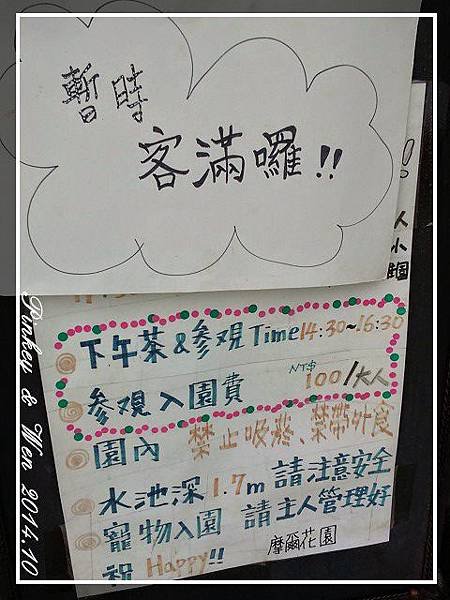 暫時
客滿囉!!
人
小
下午茶&參觀Time14:30~16:30
參觀入園費 NT$100/大人
園內 禁止吸菸、禁帶外食
水池深1.7m請注意安全
寵物入園 請主人管理好
祝 Happy!! 摩爾花園
Pinkey & Wen 2014.10